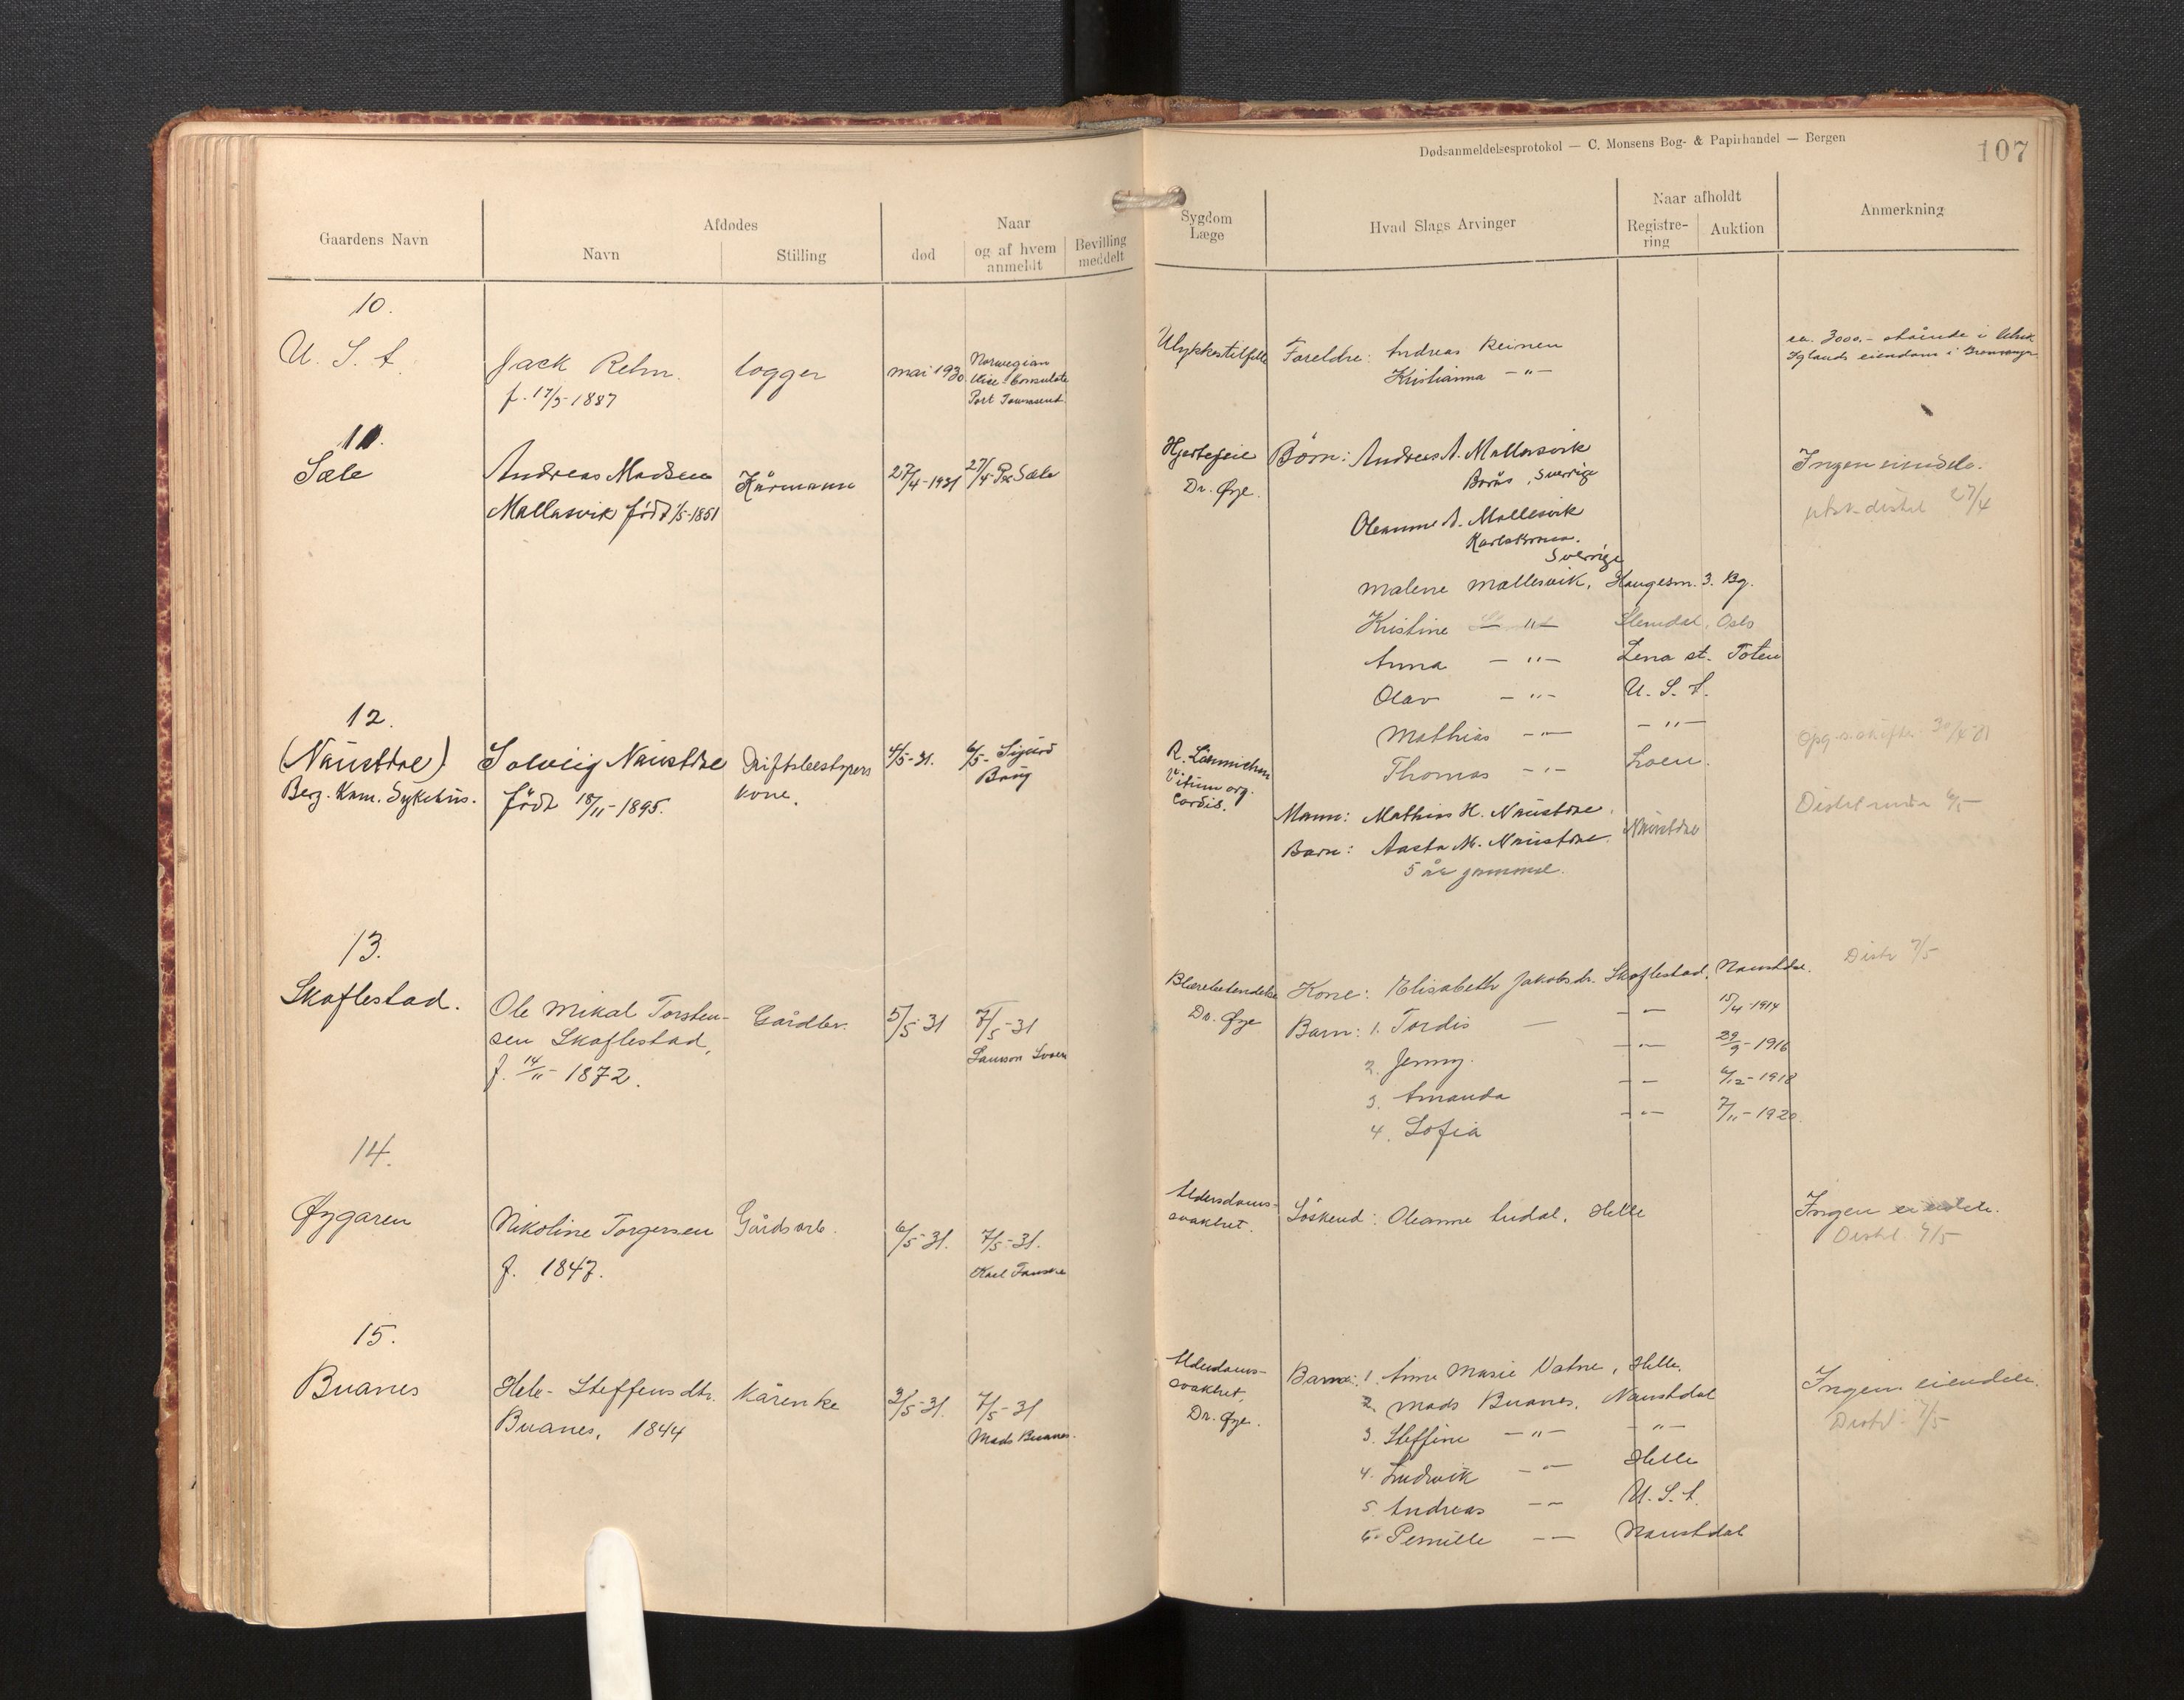 Dødsanmeldelsesprotokol — C. Monsens Bog- & Papirhandel — Bergen
107
Gaardens Navn
Afdødes
Navn
Stilling
Naar
død
og af hvem anmeldt
Bevilling meddelt
Sygdom
Læge
Hvad Slags Arvinger
Naar afholdt
Registrering
Auktion
Anmerkning
10.
U. S. A.
Jack Rehn.
f. 17/5-1887
logger
mai 1930
Norwegian
Vice-Consulate
Port Townsend.
Ulykkestilfelle
Foreldre: Andreas Reinen
Kristianna -"-
ca. 3000.- stående i
eiendom i
11.
Sæle
Andreas Madsen
Mallasvik født 1/5-1851
Kårmann
27/4-1931
27/4 Sæle
Hjertefeil
Dr. Øye.
Børn: Andreas A. Mallasvik
Borås, Sverrige
Oleanne A. Mallesvik
Karlskrona.
Sverrige
Malene Mallesvik, Haugesm. 3. Bg.
Kristine -"- Slemdal, Oslo
Anna -"- Lena st. Toten
Olav -"- U. S. A.
Mathias -"- -"-
Thomas -"- Loen.
Ingen eiendele.
27/4
12.
(Naustdal)
Berg. Kom. Sykehus.
Solveig Naustdal
født 18/11-1895.
Driftsbestyrers
kone.
4/5-31.
6/5- Sigurd
Vitium org.
Cordis.
Mann: Mathias H. Naustdal.
Barn: Aasta M. Naustdal. Naustdal
5 år gammel.
13.
Skaflestad.
Ole Mikal Torsten-
sen Skaflestad,
f. 14/11-1872.
Gårdbr.
5/5-31
7/5-31
Samson
Blærebetendelse
Dr. Øye
Kone: Elisabeth Jakobsdr. Skaflestad, Naustdal.
Barn: 1. Tordis — -"- 15/4-1914
2. Jenny. -"- 29/9-1916
3. Amanda -"- 6/12-1918
4. Sofia -"- 7/11-1920.
Distr 7/5
14.
Øygaren
Nikoline Torgersen
f. 1847.
Gårdsarb.
6/5-31.
7/5-31.
Karl
Alderdoms-
svakhet.
Søskend: Oleanne Indal, Helle
Ingen eiendele.
15.
Buanes
Hele- Steffensdtr.
Buanes, 1844
Kårenke
3/5-31.
7/5-31
Mads Buanes.
Alderdoms-
svakhet,
Dr. Øye.
Barn: 1. Anne Marie Vatne, Helle.
2. Mads Buanes, Naustdal
3. Steffine -"- -"-
4. Ludvik -"- Helle
5. Andreas -"- U. S. A.
6. Pernille -"- Naustdal
Ingen eiendele.